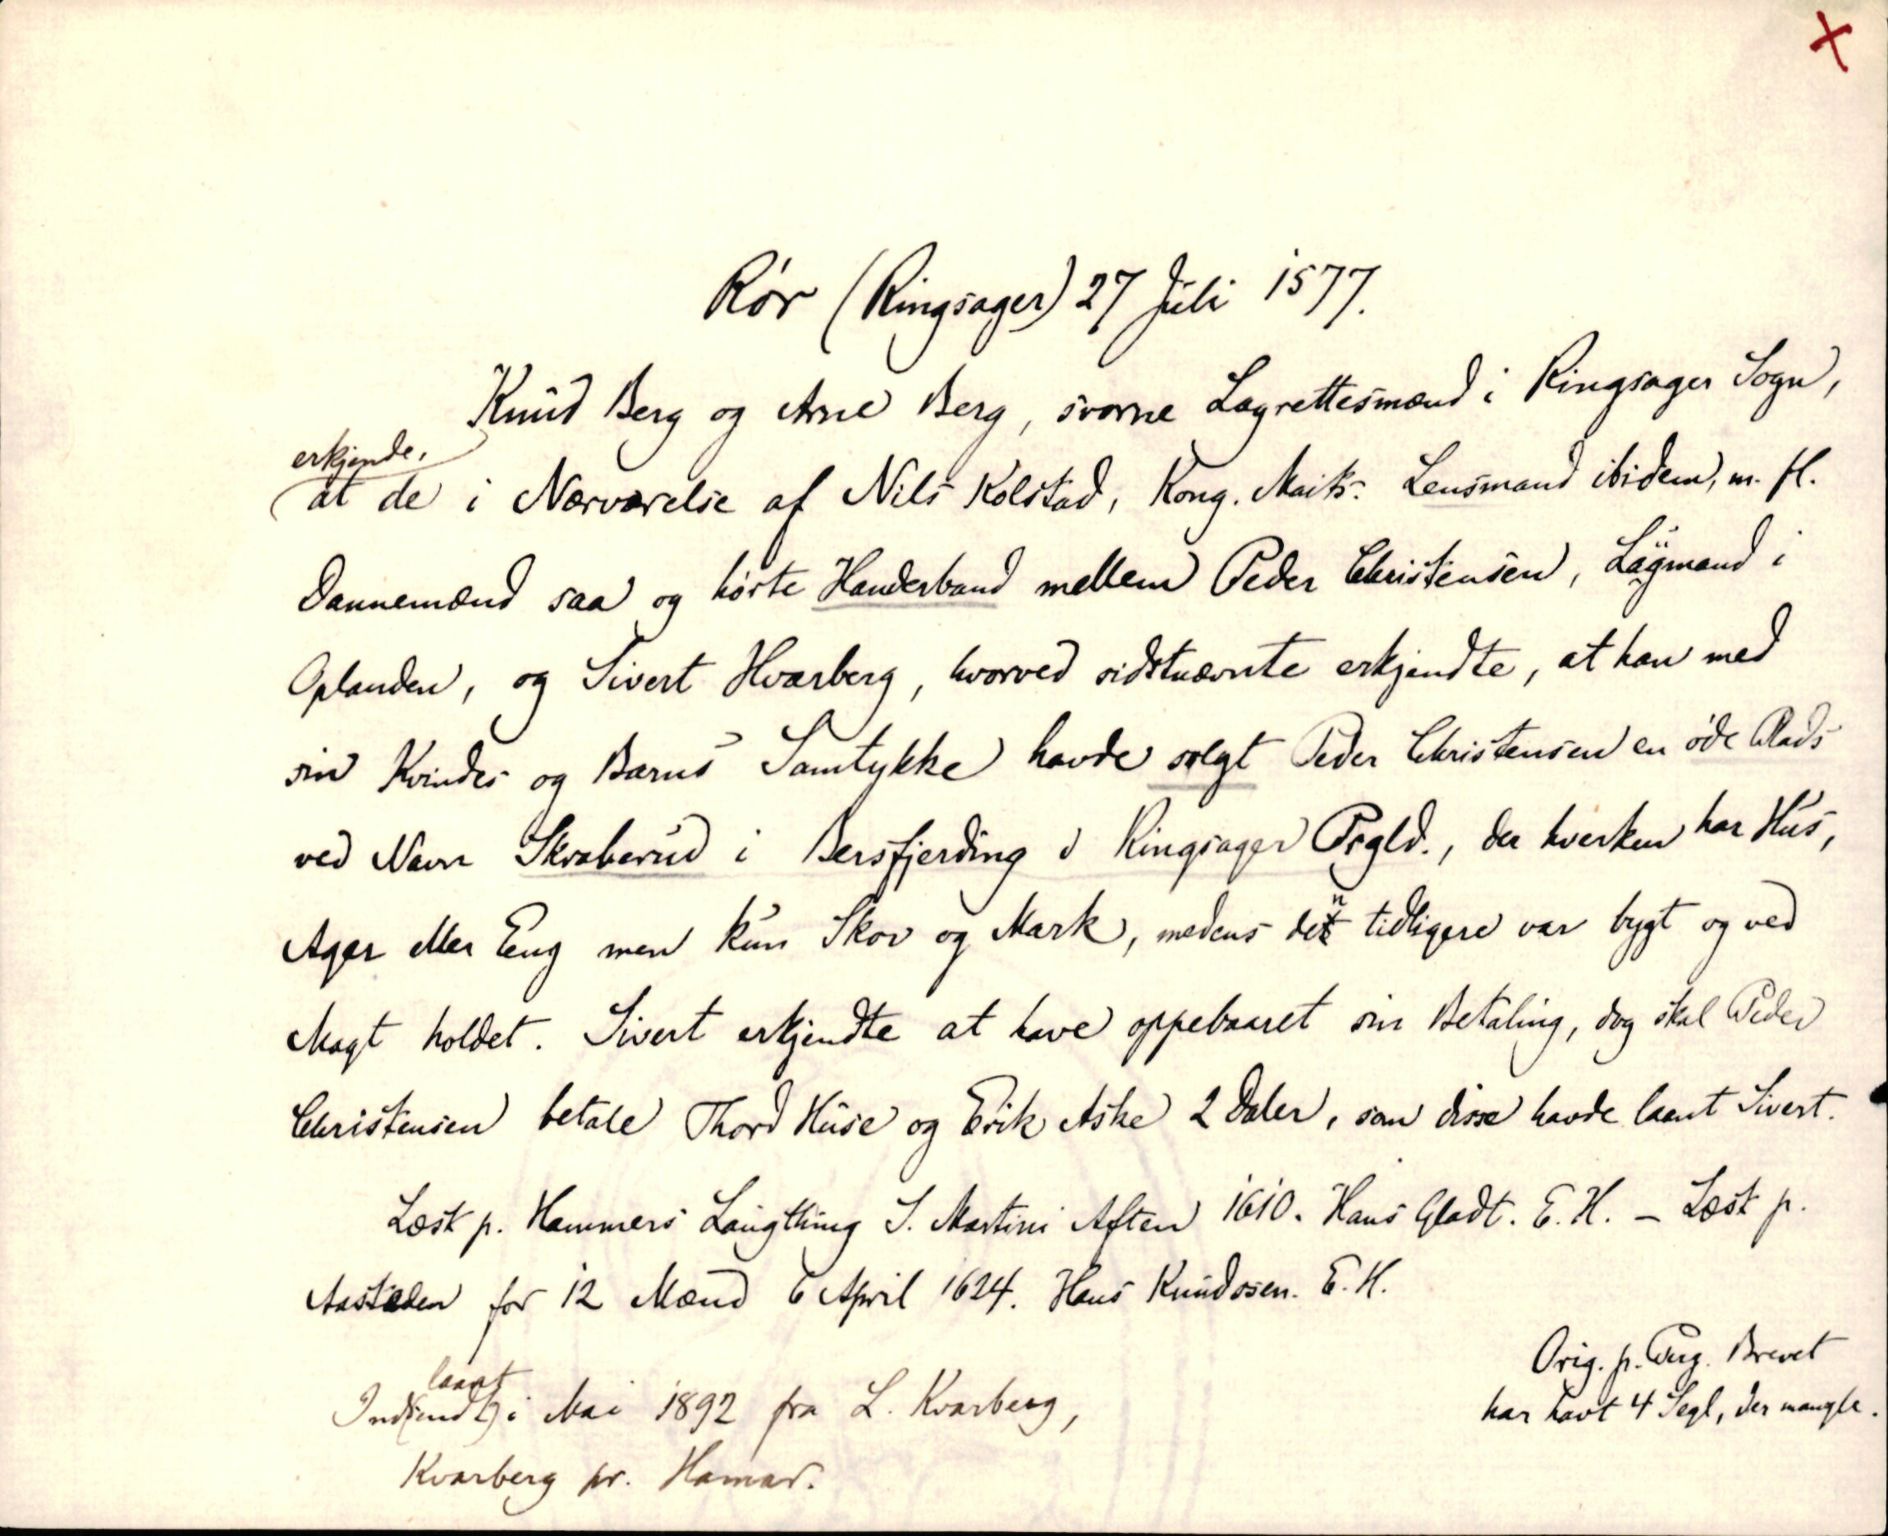 Rør (Ringsager) 27 Juli 1577.
Knud Berg og Arne Berg, svorne Lagrettesmænd i Ringsager Sogn,
erkjende,
at de i Nærværelse af Nils Kolstad, Kong. Maits. Lensmand ibidem, m. fl.
Dannemænd saa og hørte Handerband mellem Peder Christensen, Lagmand i
Oplanden, og Sivert Hvarberg, hvorved sidstnævnte erkjendte, at han med
sin Kvindes og Barns Samtykke havde solgt Peder Christensen en øde Plads
ved Navn Skraberud i Bersfjerding i Ringsager Prgld., der hverken har Hus,
Ager eller Eng men kun Skov og Mark, medens den tidligere var bygt og ved
Magt holdet. Sivert erkjendte at have oppebaaret sin Betaling, dog skal Peder
Christensen betale Thord Huse og Erik Aske 2 Daler, som disse havde laant Sivert.
Læst p. Hammers Laugthing S. Martini Aften 1610. Hans Gladt. E. H. — Læst p.
Aastæden for 12 Mænd 6 April 1624. Hans Knudssen. E. H.
Orig. p. Perg. Brevet
har havt 4 Segl, der mangle.
laant
Ind(sendt) i Mai 1892 fra L. Kvarberg,
Kvarberg pr. Hamar.